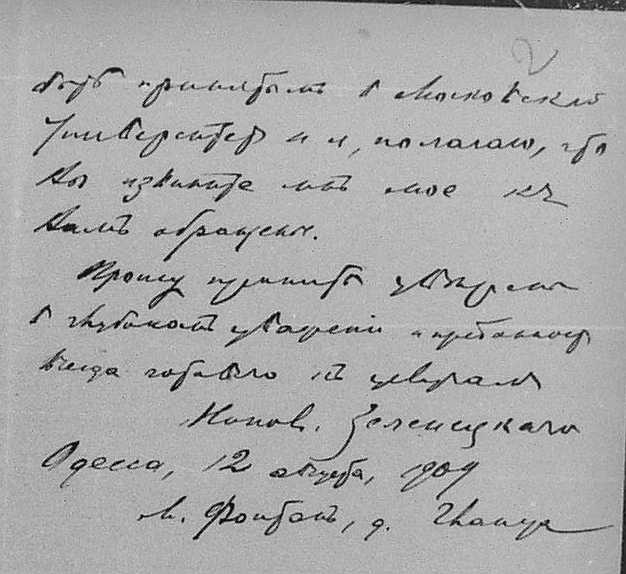 2
быть принятымъ в Московскій
Университетъ и я, полагаю, что
Вы извините мнѣ мое къ
Вамъ обращеніе.
Прошу принять увѣреніе
в глубокомъ уваженіи и преданности
всегда готоваго къ услугамъ
Зеленецкаго
Одесса, 12 августа, 1909
М. Фонтанъ, д.